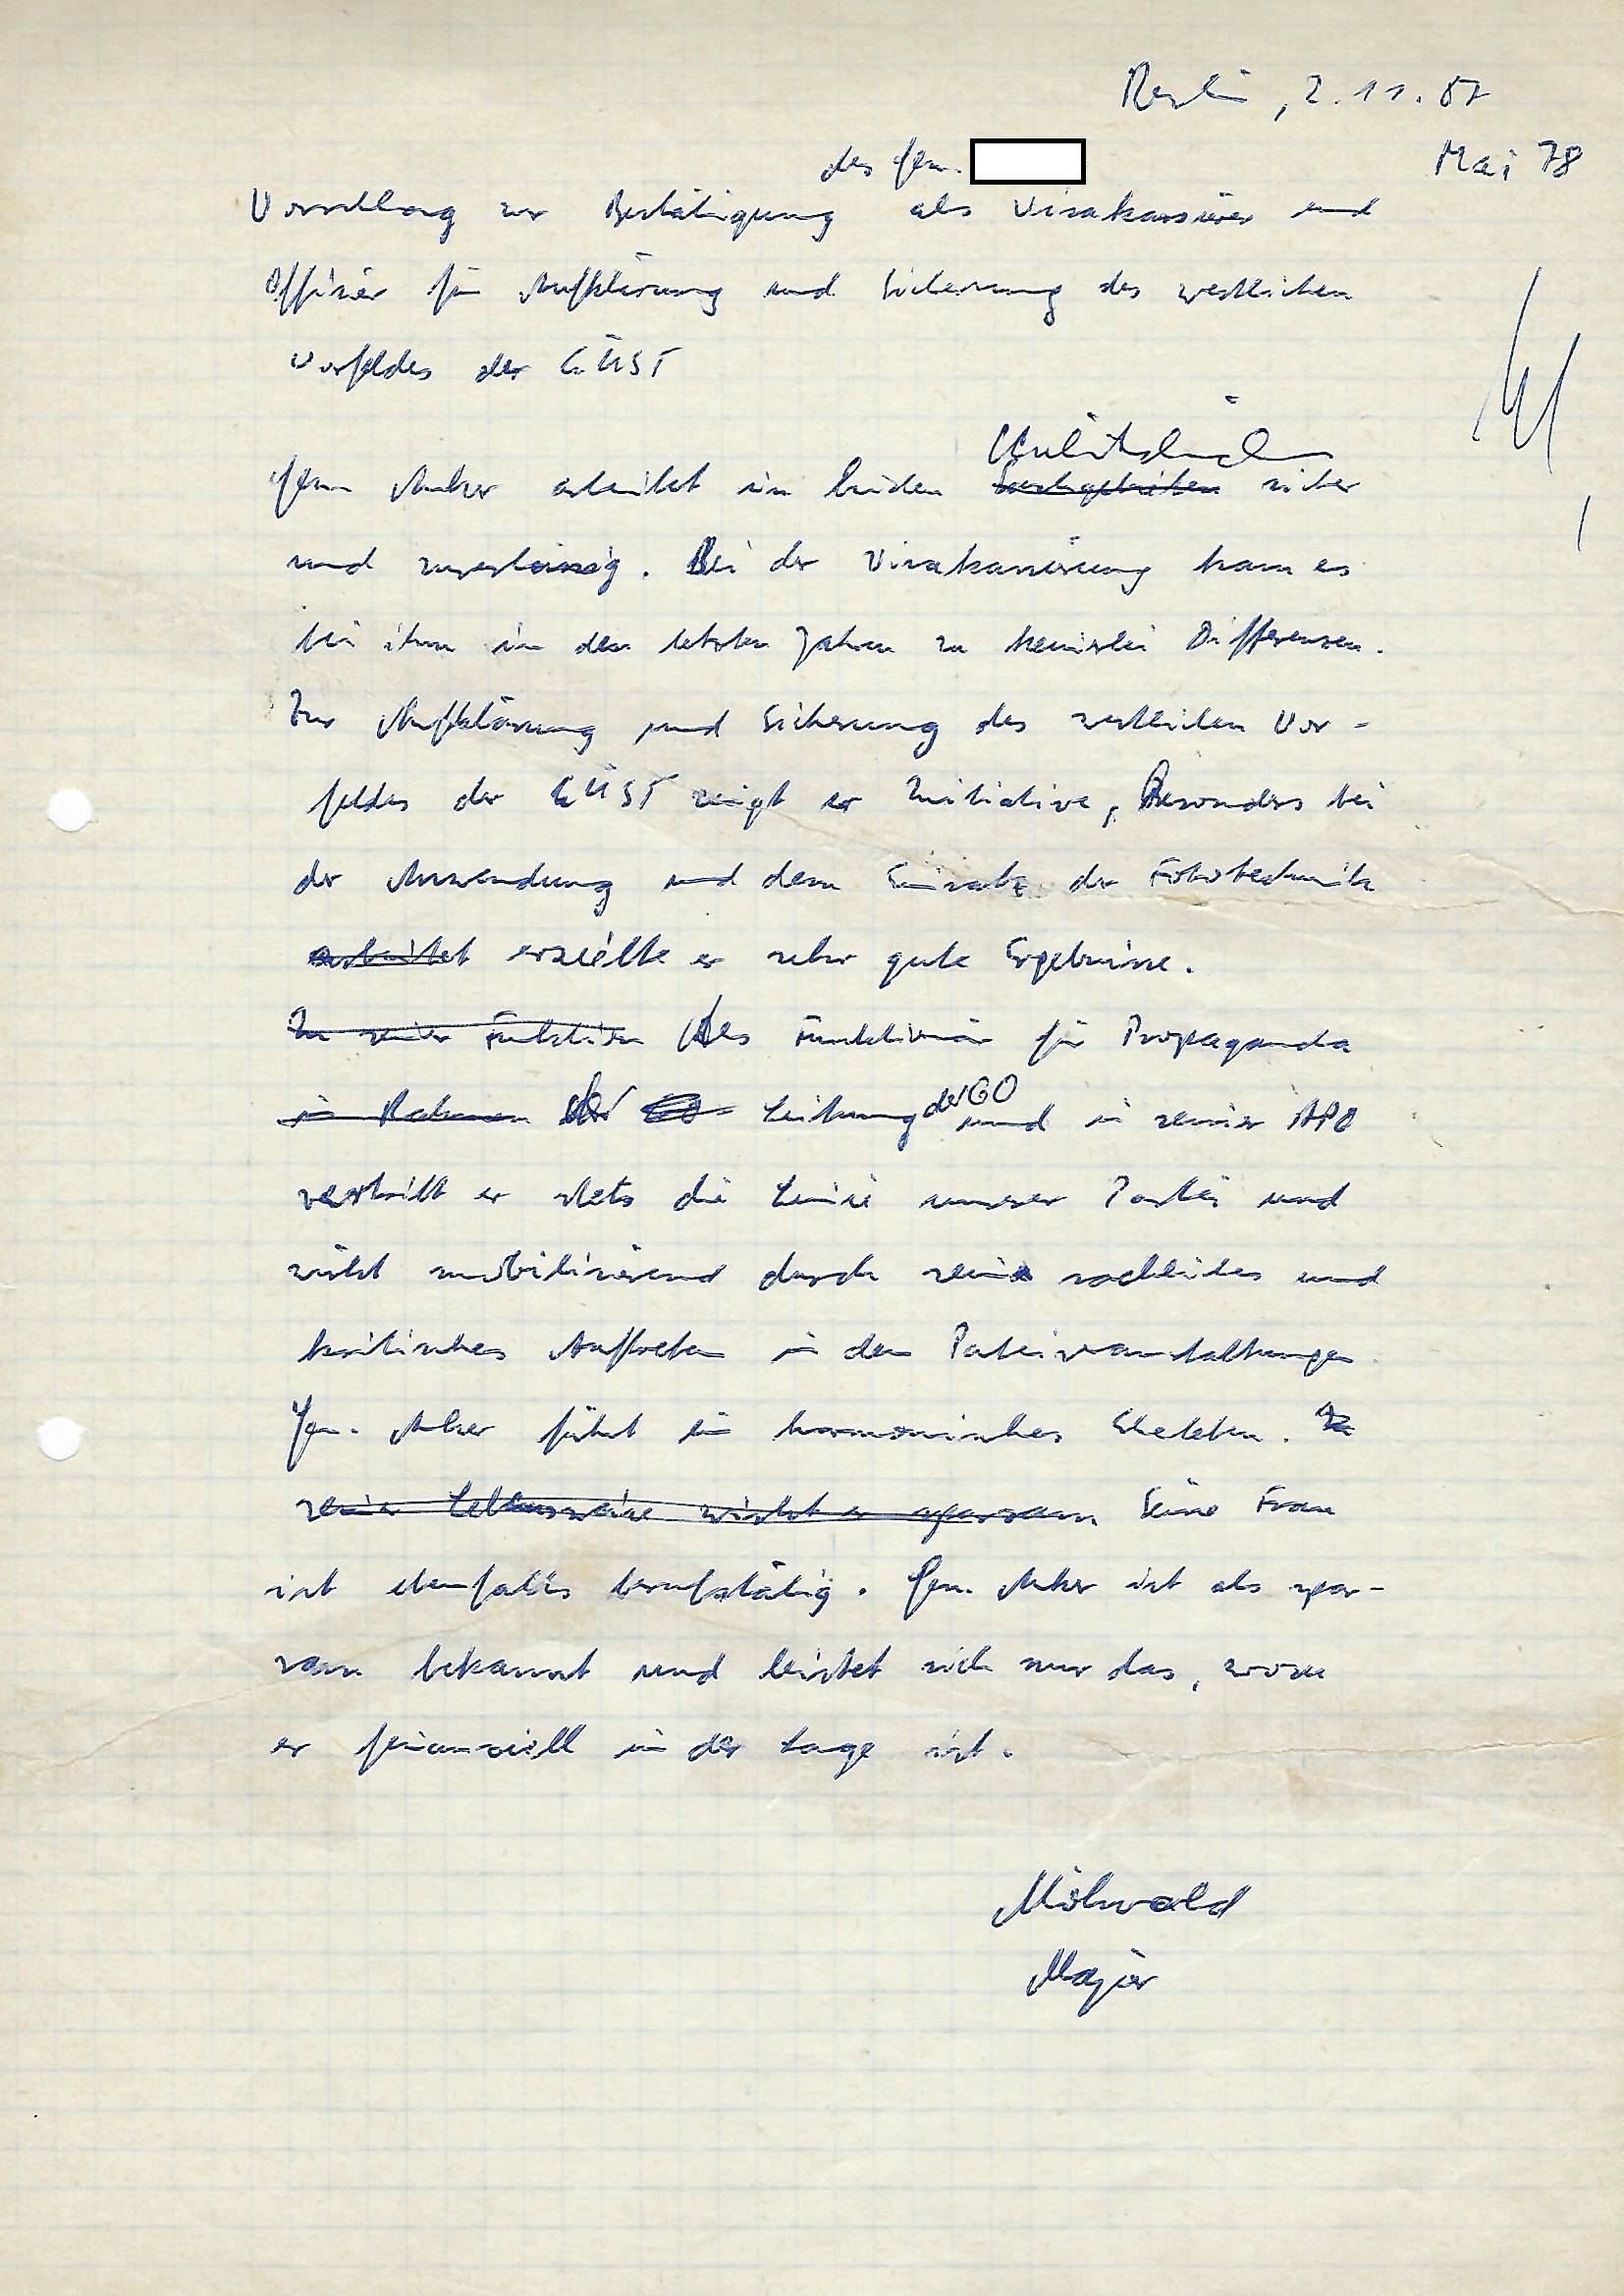 Berlin, 2.11.87
des Gen.
Mai 78
Vorschlag zur Bestätigung als Visakassierer und
Offizier für Aufklärung und Sicherung des westlichen
Vorfeldes der GÜST
Gen. arbeitet in beiden Sachgebieten sicher
und zuverlässig. Bei der Visakassierung kam es
bei ihm in den letzten Jahren zu keinerlei Differenzen.
Zur Aufklärung und Sicherung des westlichen Vor-
feldes der GÜST zeigt er Initiative, Besonders bei
der Anwendung und dem Einsatz der Fototechnik
arbeitet erzielte er sehr gute Ergebnisse.
In seiner Funktion Als Funktionär für Propaganda
im Rahmen der GO Leitung der GO und in seiner APO
vertritt er stets die Linie unserer Partei und
wirkt mobilisierend durch sein sachliches und
kritisches Auftreten in den Parteiveranstaltungen.
Gen. führt ein harmonisches Eheleben. In
seiner Lebensweise wirkt er sparsam Seine Frau
ist ebenfalls berufstätig. Gen. ist als spar-
sam bekannt und leistet sich nur das, wozu
er finanziell in der Lage ist.
Möhwald
Major